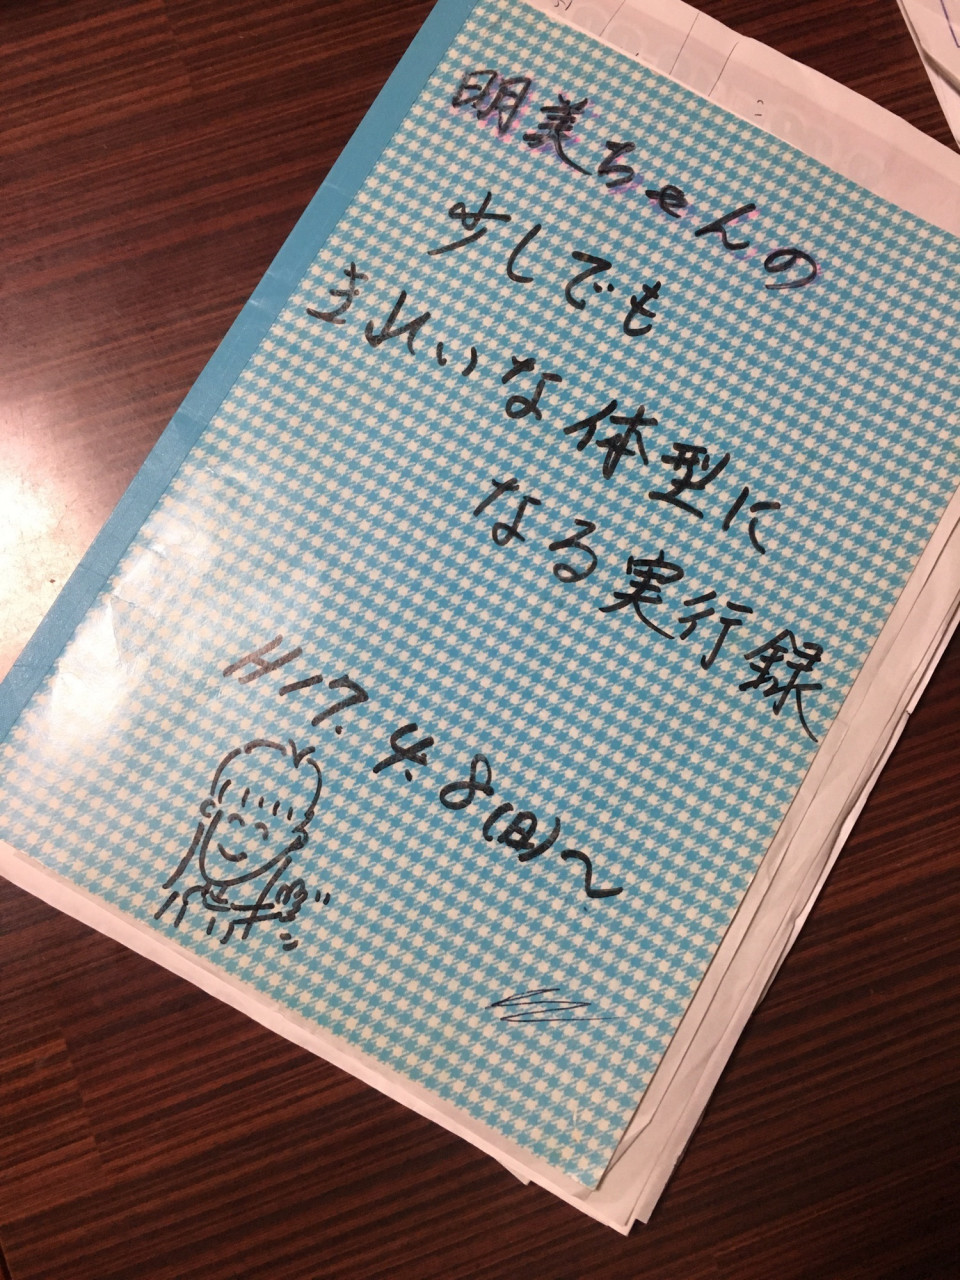 明美ちゃんの
少しでも
きれいな体型に
なる実行録
H17.4.8(日)~